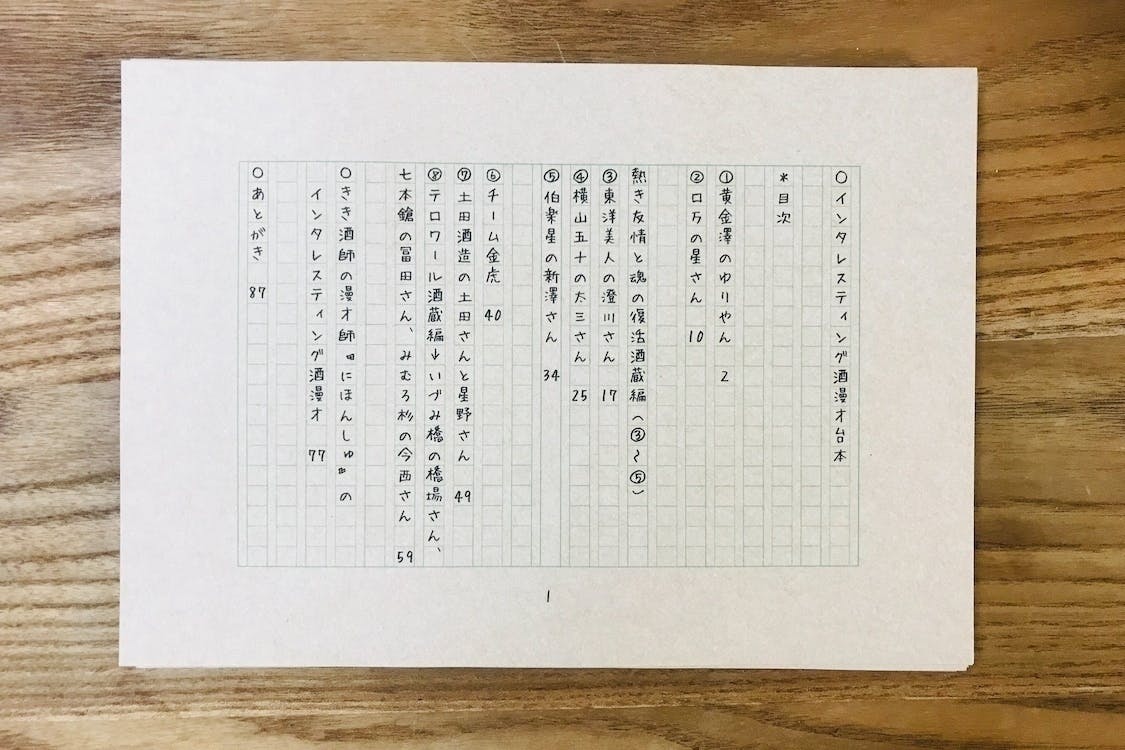 ○インタレスティング酒漫才台本
＊目次
①黄金澤のゆりやん 2
②ロ万の星さん 10
熱き友情と魂の復活酒蔵編（③〜⑤）
③東洋美人の澄川さん 17
④横山五十の太三さん 25
⑤伯楽星の新澤さん 34
⑥チーム金虎 40
⑦土田酒造の土田さんと星野さん 49
⑧テロワール酒蔵編→いづみ橋の橋場さん、
七本鎗の冨田さん、みむろ杉の今西さん 59
○きき酒師の漫才師〝にほんしゅ〟の
インタレスティング酒漫才 77
○あとがき 87
1